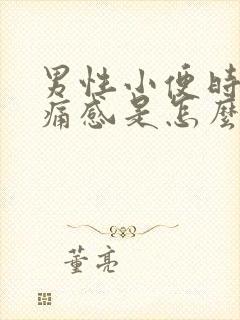 男性小便时
痛感是怎麼
董亮